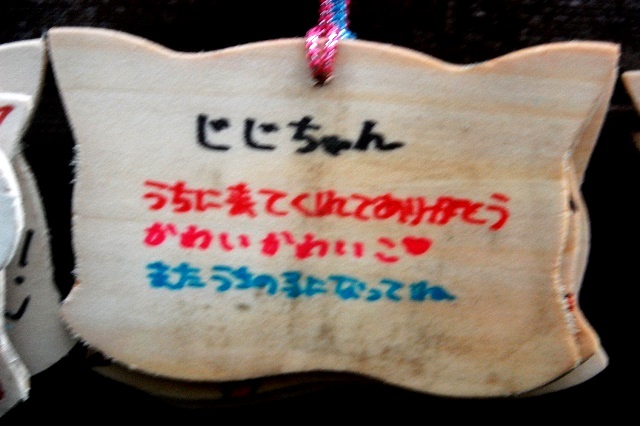 じじちゃん
うちに来てくれてありがとう
かわいかわいこ♥
またうちの子になってね